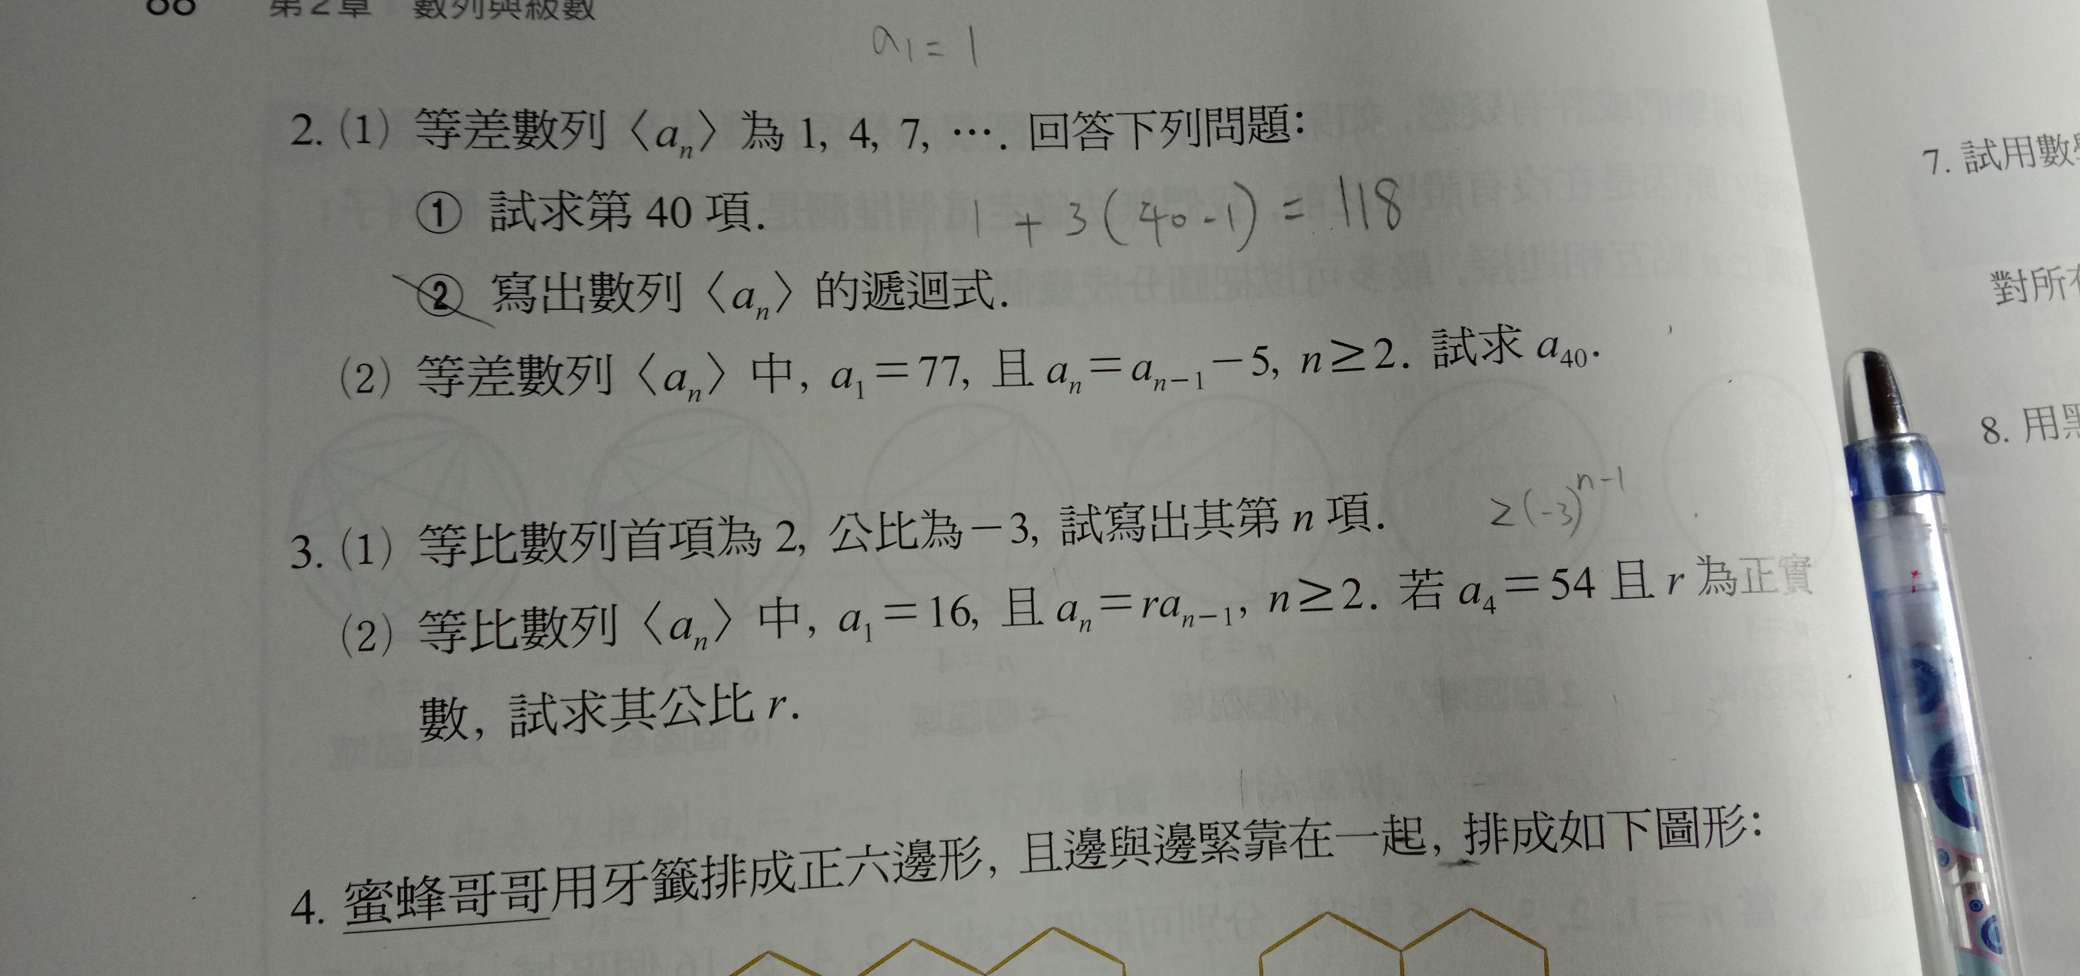 第2章 數列與級數
a₁=1
2. (1) 等差數列〈aₙ〉為 1, 4, 7, …. 回答下列問題:
① 試求第 40 項. 1+3(40-1)=118
② 寫出數列〈aₙ〉的遞迴式.
(2) 等差數列〈aₙ〉中, a₁=77, 且 aₙ=aₙ₋₁−5, n≥2. 試求 a₄₀.
3. (1) 等比數列首項為 2, 公比為−3, 試寫出其第 n 項. 2(-3)ⁿ⁻¹
(2) 等比數列〈aₙ〉中, a₁=16, 且 aₙ=raₙ₋₁, n≥2. 若 a₄=54 且 r 為正實
數, 試求其公比 r.
4. 蜜蜂哥哥用牙籤排成正六邊形, 且邊與邊緊靠在一起, 排成如下圖形:
7. 試用數
對所
8. 用